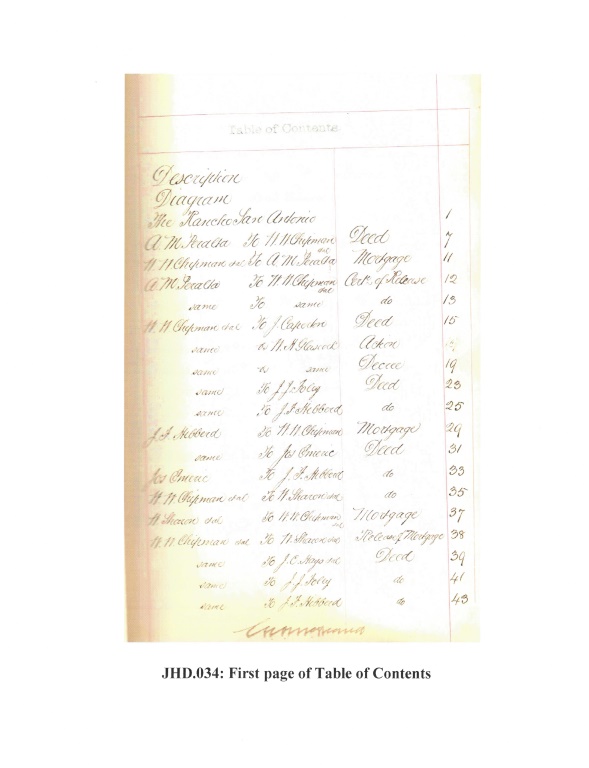 Table of Contents
Description
Diagram
The Rancho San Antonio 1
A M Peralta To W W Chipman Deed 7
W W Chipman et al To A M Peralta Mortgage 11
A M Peralta To W W Chipman et al Cert of Release 12
same To same do 13
W. W Chipman et al To J Caperton Deed 15
same vs W. H Glascock Action
same vs same Decree 19
same To J J Foley Deed 23
same To J F Hebberd do 25
J. F Hebberd To W W Chipman Mortgage 29
same To Jos Emeric Deed 31
Jos Emeric To J. F. Hebberd do 33
W W Chipman et al To W. Sharon et al do 35
W. Sharon et al To W W Chipman et al Mortgage 37
W. W. Chipman et al To W Sharon et al Release of Mortgage 38
same To J. C. Hays et al Deed 39
same To J. J Foley do 41
same To J F Hebberd do 43
JHD.034: First page of Table of Contents